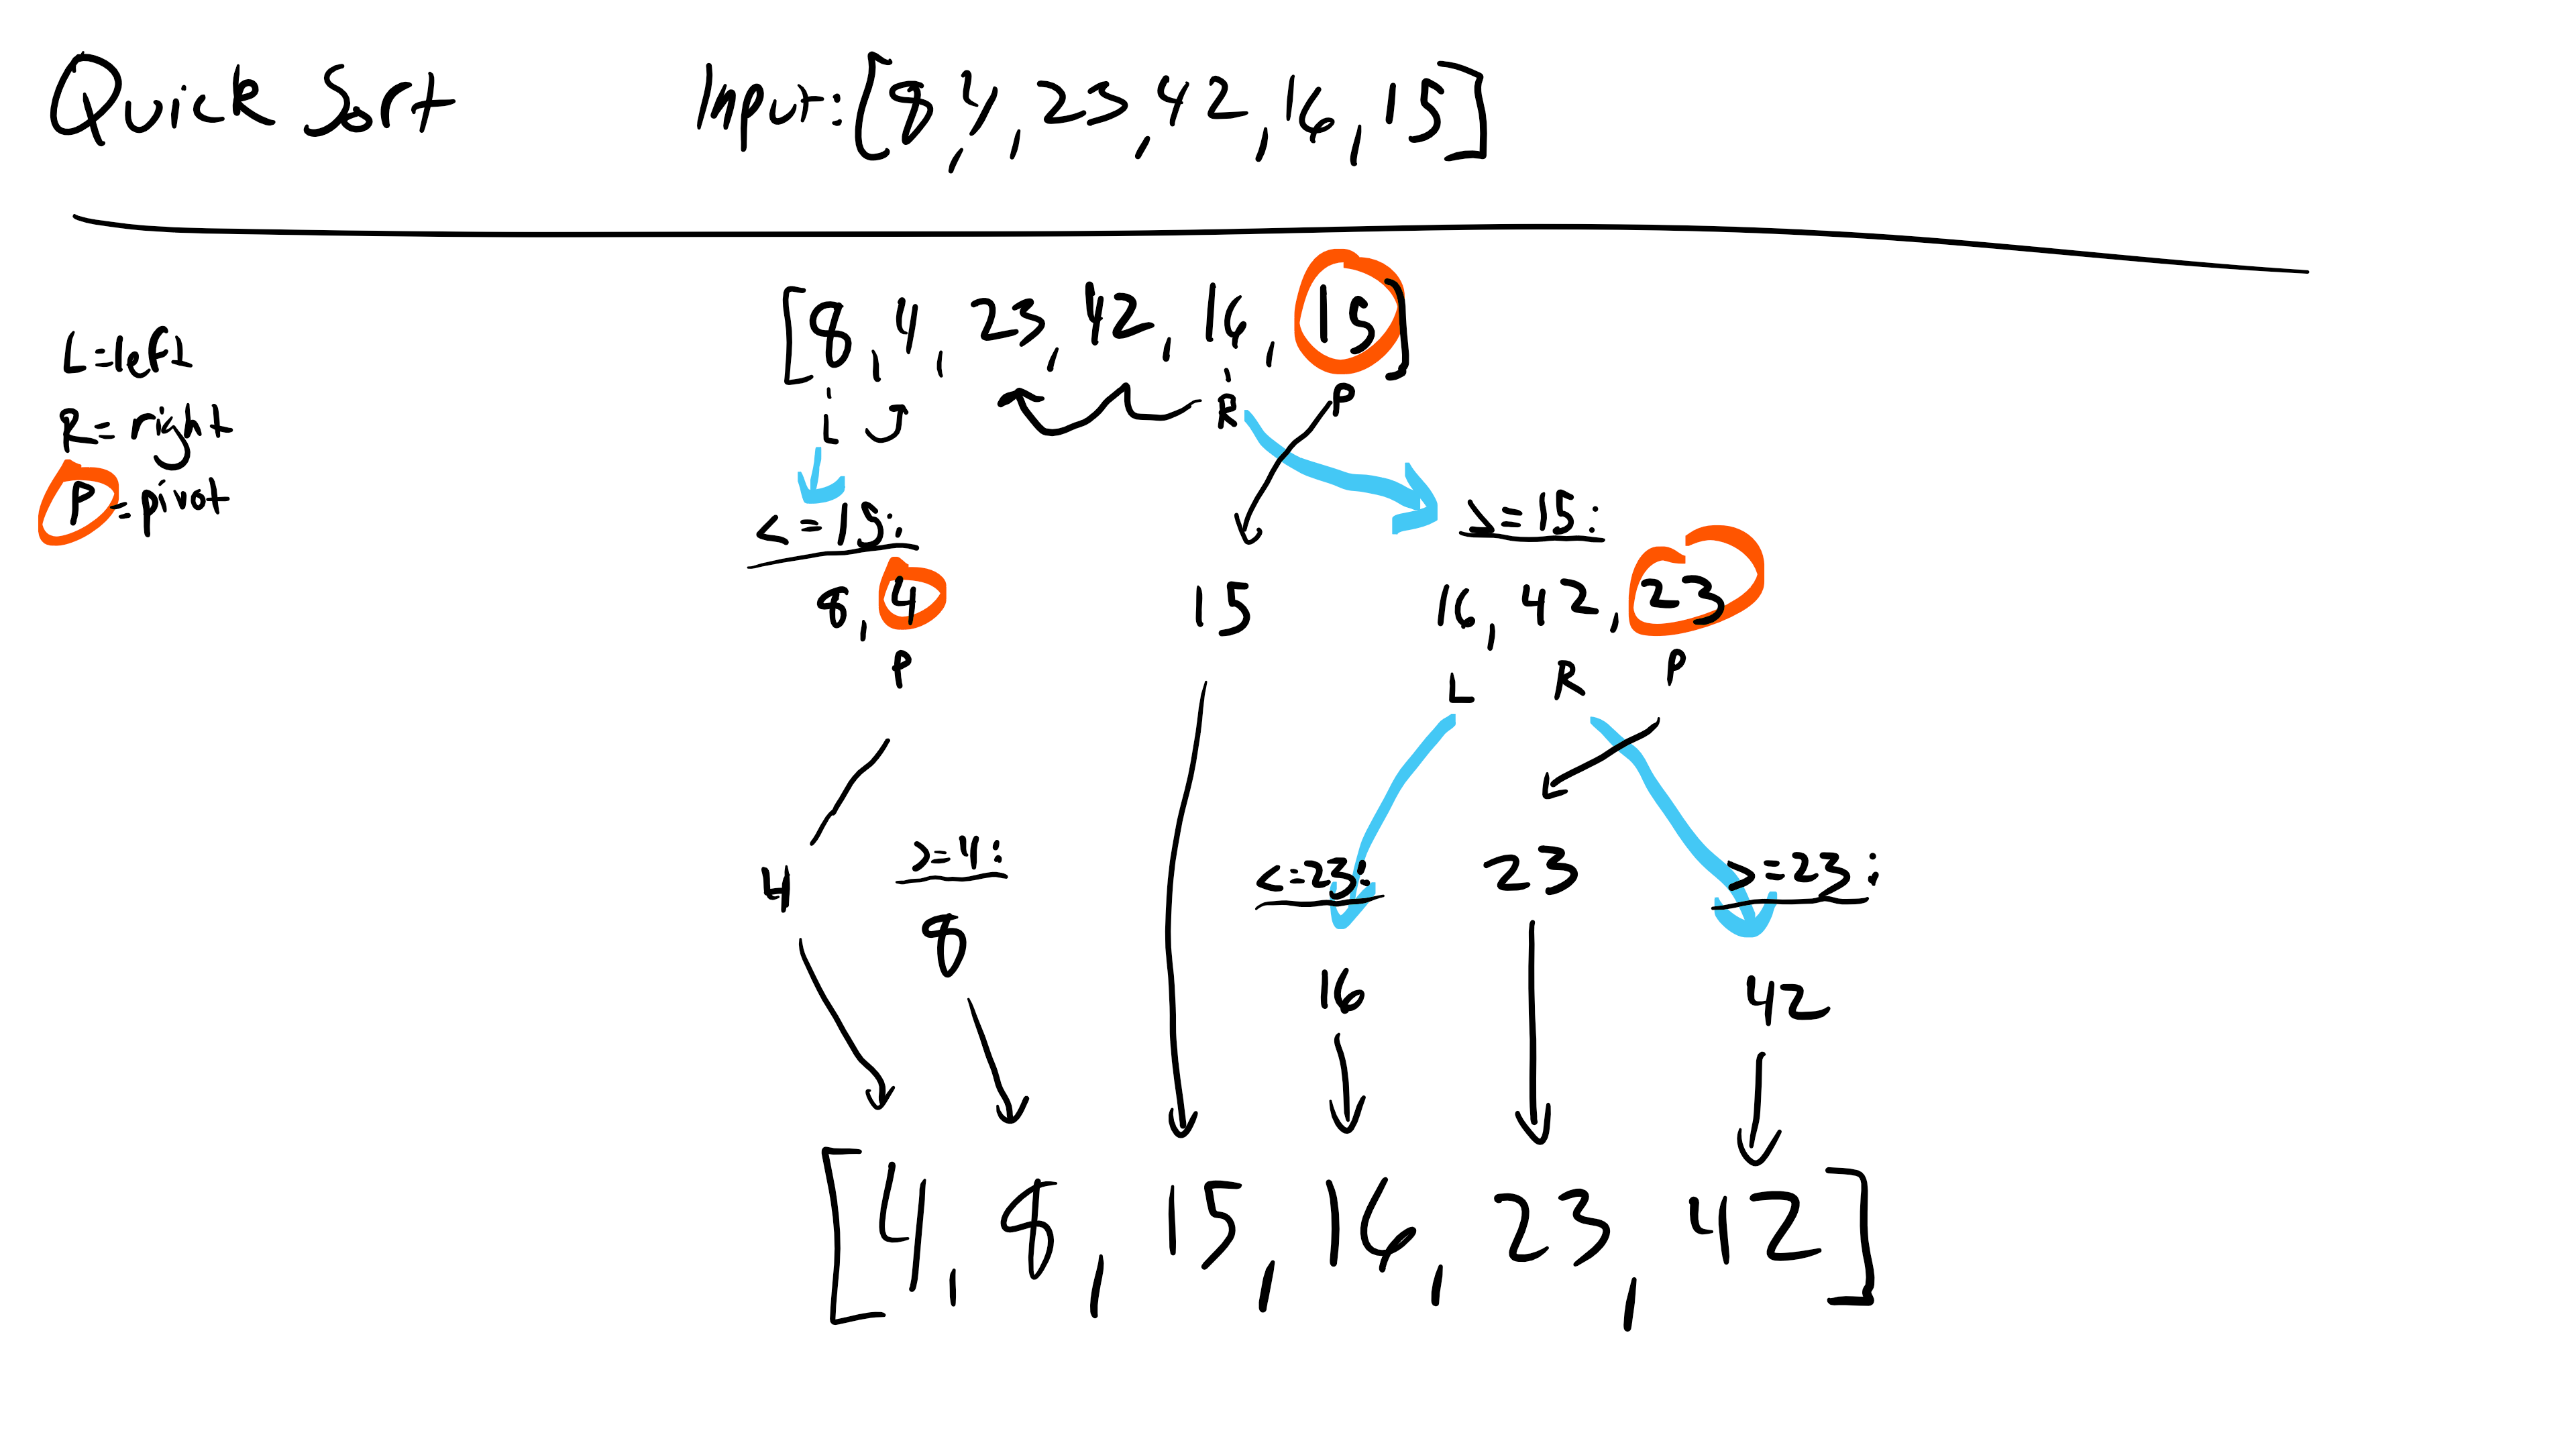 Quick Sort
Input: [8, 4, 23, 42, 16, 15]
L=left
R=right
P=pivot
[8, 4, 23, 42, 16, 15]
L R P
<=15: >=15:
8, 4 15 16, 42, 23
P L R P
4 >=4: <=23: 23 >=23:
8 16 42
[4, 8, 15, 16, 23, 42]